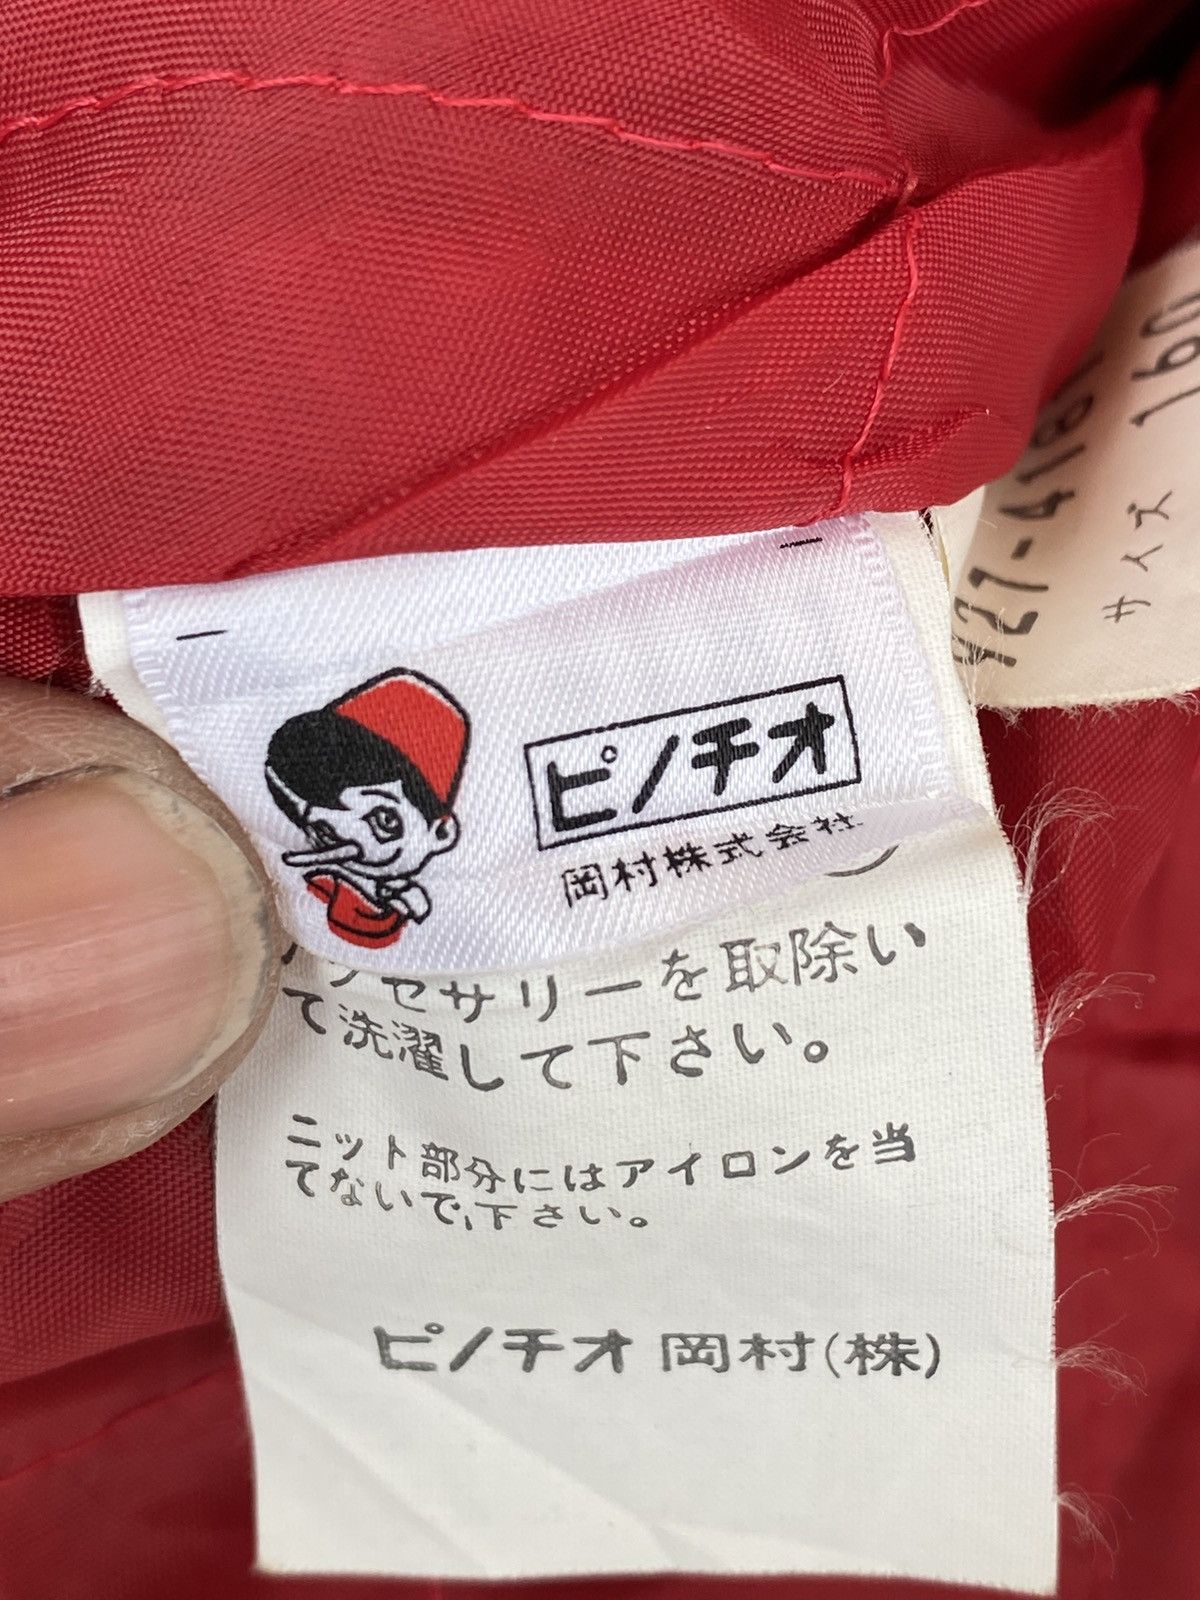 ピノチオ
岡村株式会社
アクセサリーを取除い
て洗濯して下さい。
ニット部分にはアイロンを当
てないで下さい。
ピノチオ 岡村(株)
サイズ 160